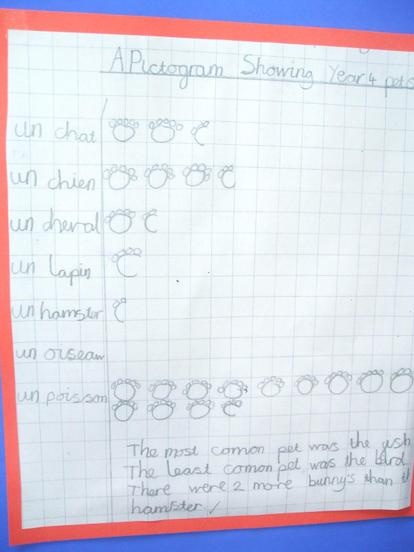 A Pictogram Showing Year 4 pets
un chat
un chien
un cheval
un lapin
un hamster
un oiseau
un poisson
The most comon pet was the fish
The least comon pet was the bird
There were 2 more bunny's than
hamster